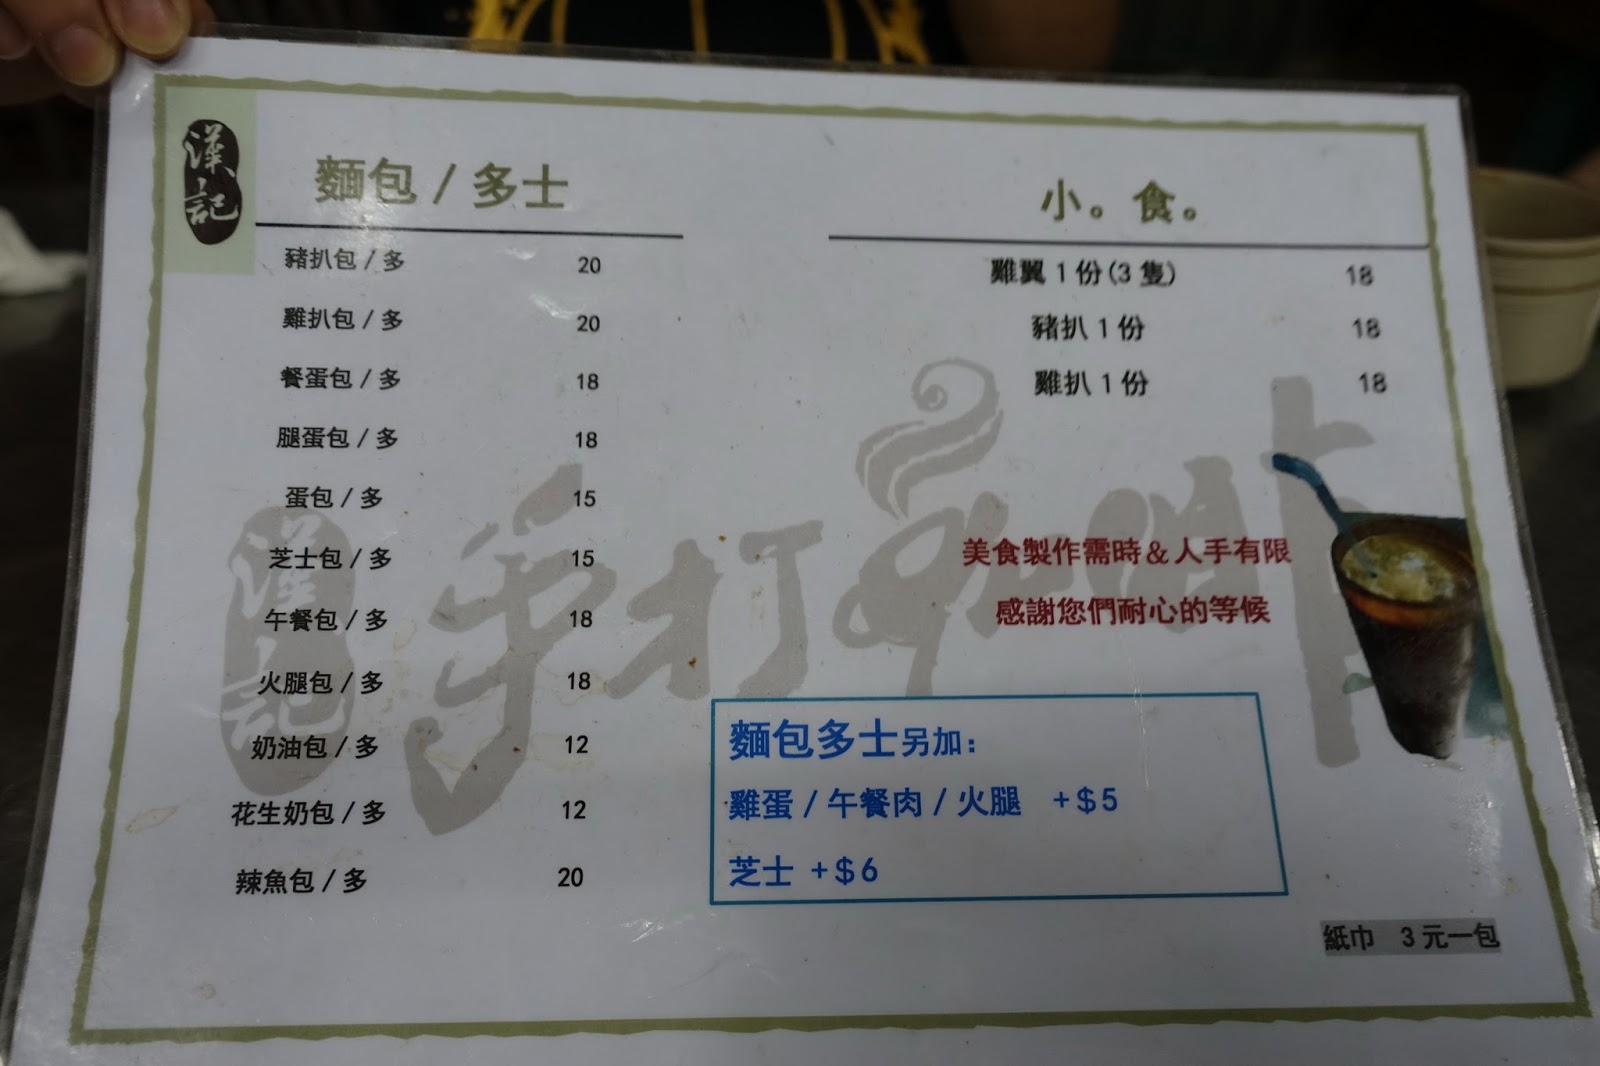 漢記
麵包 / 多士
豬扒包 / 多 20
雞扒包 / 多 20
餐蛋包 / 多 18
腿蛋包 / 多 18
蛋包 / 多 15
芝士包 / 多 15
午餐包 / 多 18
火腿包 / 多 18
奶油包 / 多 12
花生奶包 / 多 12
辣魚包 / 多 20
小。食。
雞翼 1 份(3 隻) 18
豬扒 1 份 18
雞扒 1 份 18
漢記
手打咖啡
美食製作需時&人手有限
感謝您們耐心的等候
麵包多士另加:
雞蛋 / 午餐肉 / 火腿 +$5
芝士 +$6
紙巾 3 元一包